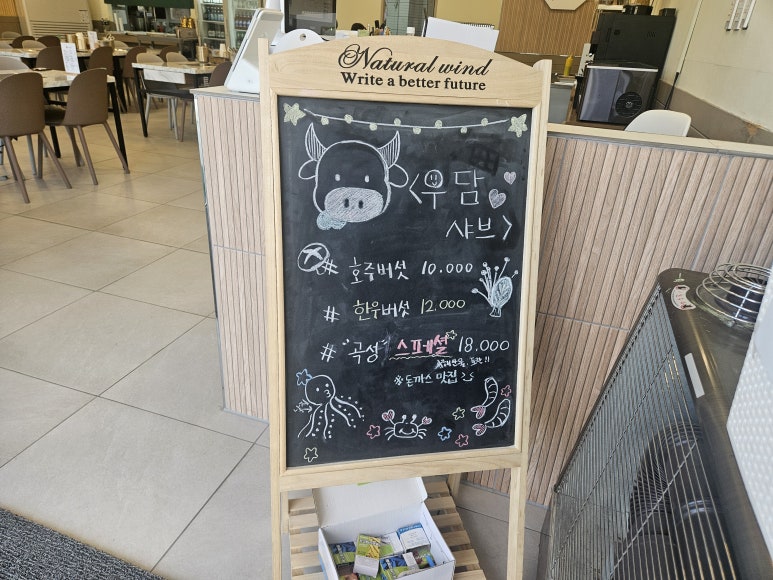 Natural wind
Write a better future
<우담
샤브>
# 호주버섯 10.000
# 한우버섯 12.000
# "곡성" 스페셜 18.000
※돈까스 맛집